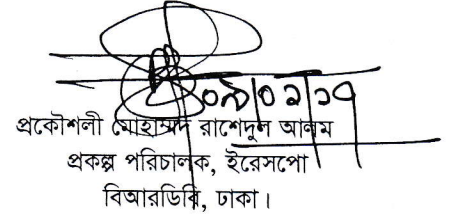 ০৯/০২/১৭
প্রকৌশলী মোহাম্মদ রাশেদুল আলম
প্রকল্প পরিচালক, ইরেসপো
বিআরডিবি, ঢাকা।